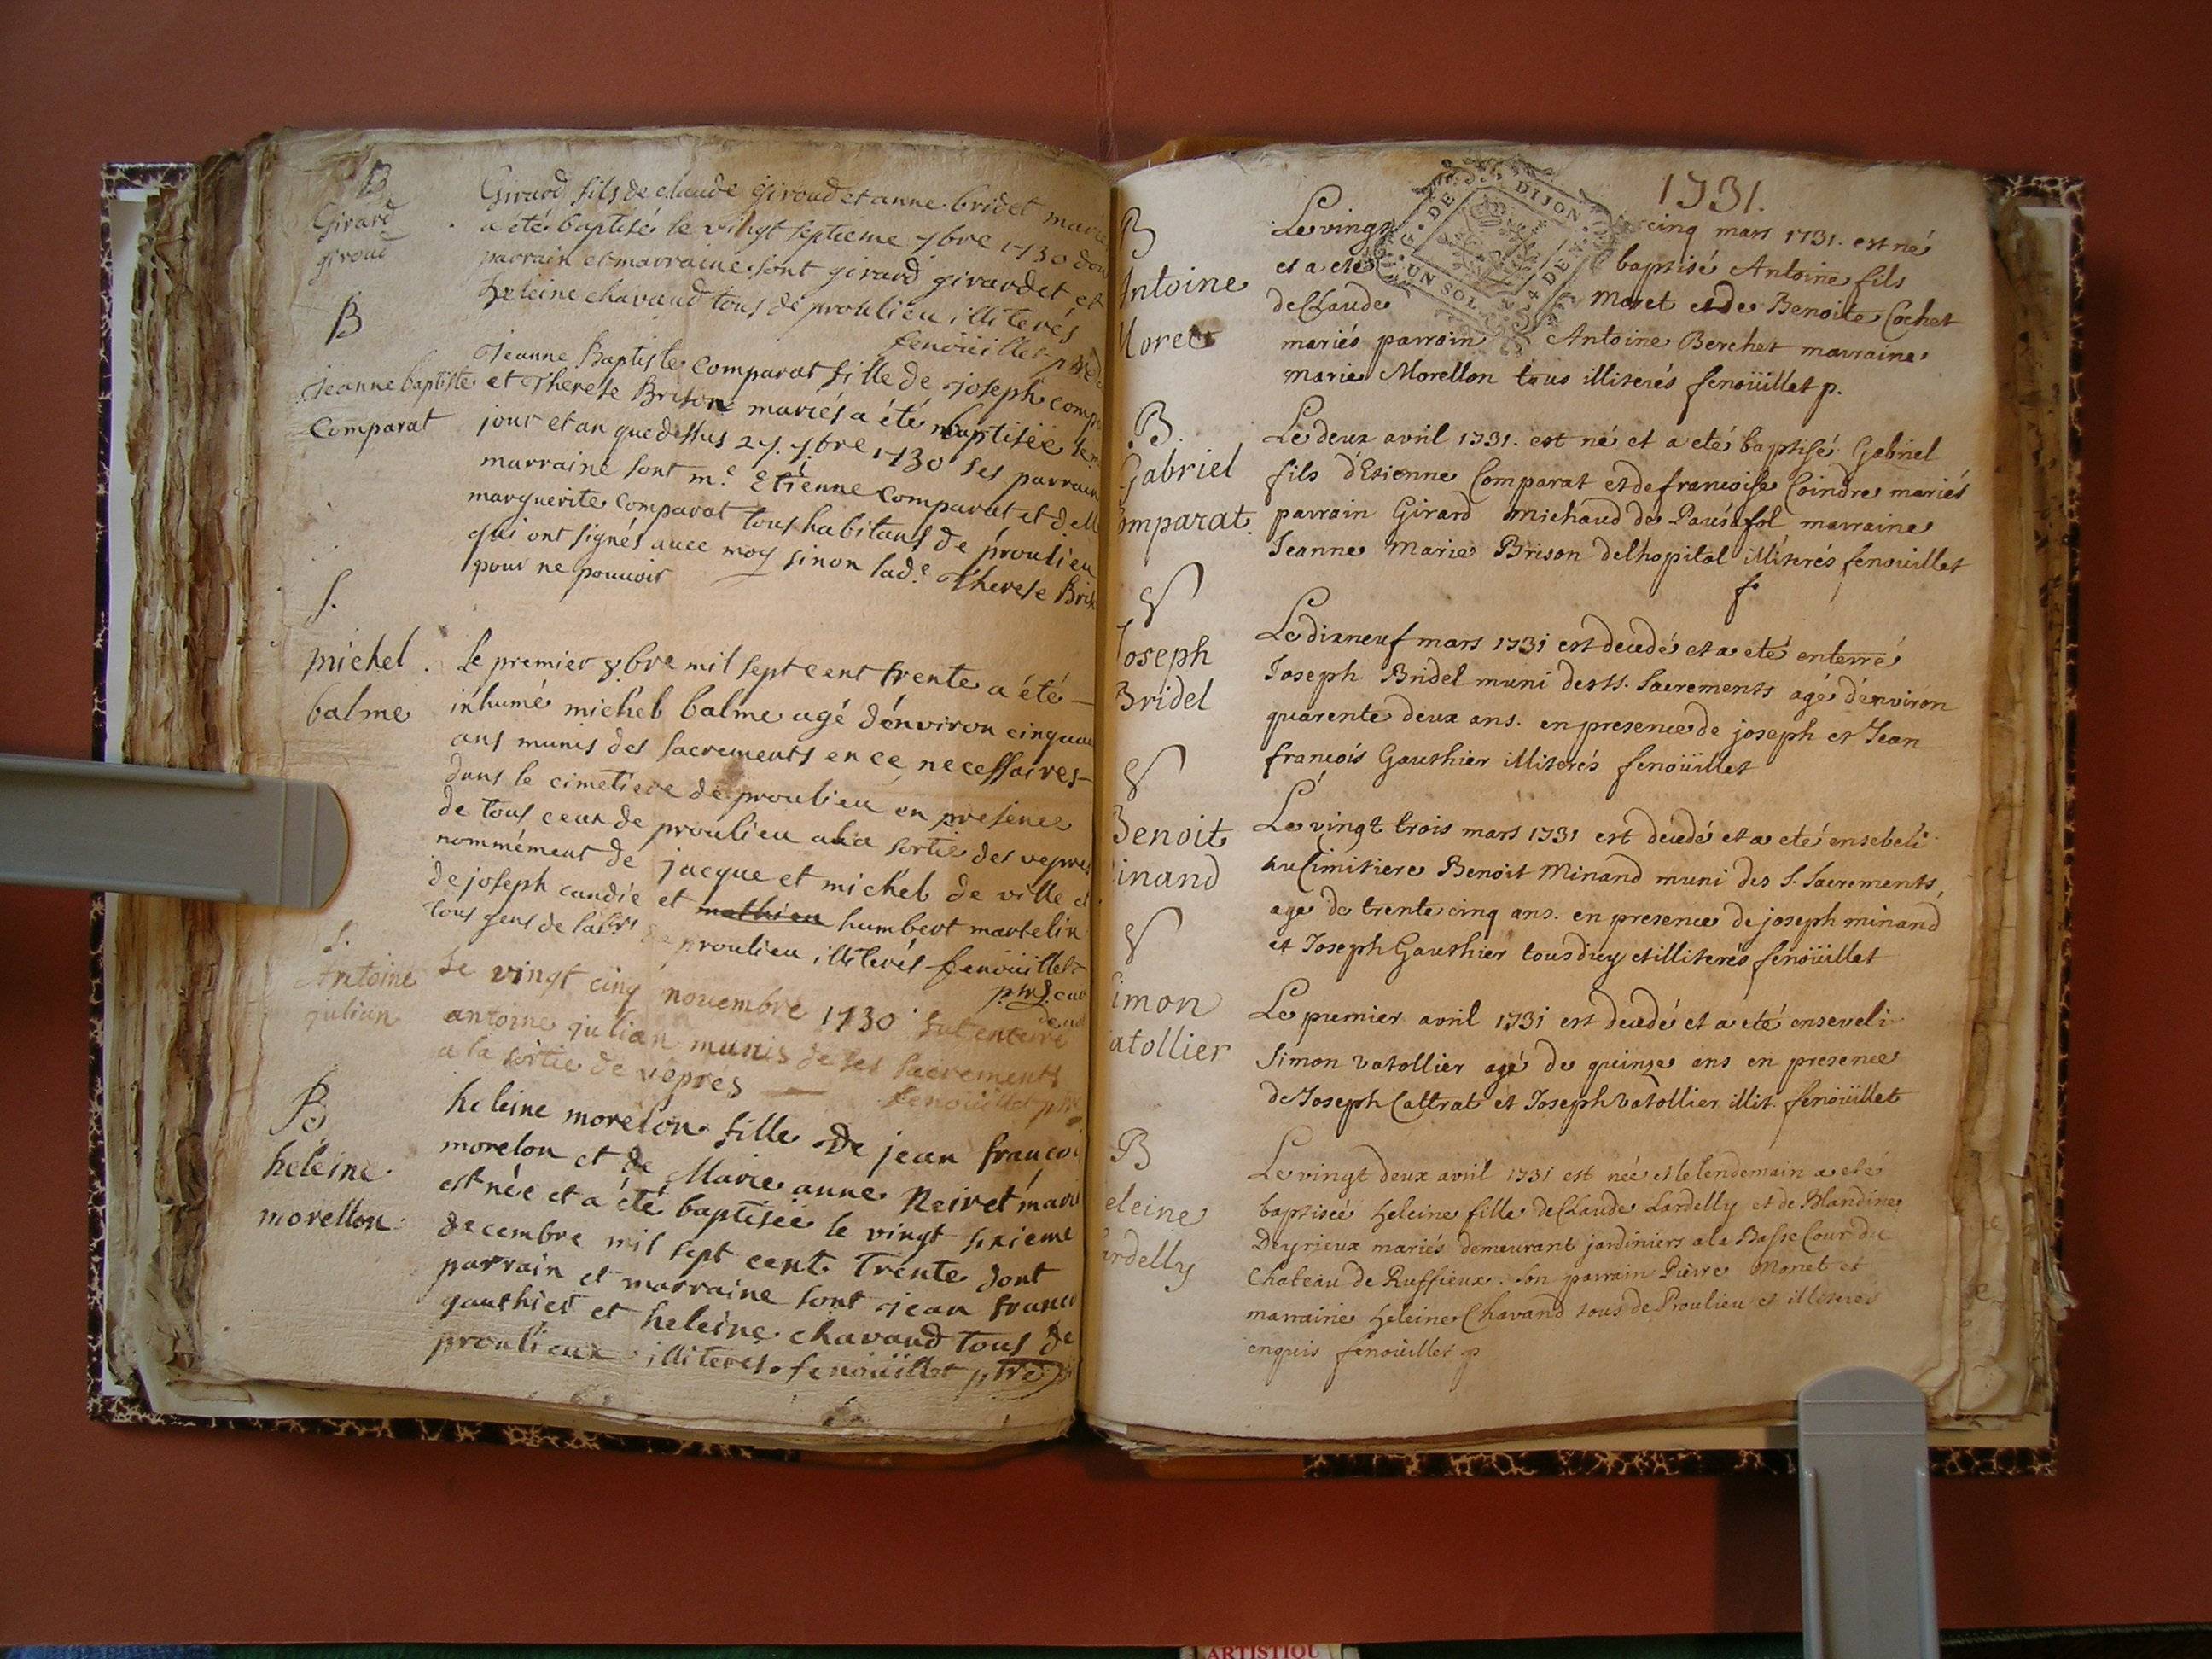 B
Girard
giroud
Giraud fils de claude Giroud et anne bridet marie
a été baptisé le vingt septieme 7bre 1730 don
parrain et marraine sont girard girardet et
heleine chavand tous de proulieu illiterés
fenoüillet ptre
B
Jeanne baptiste
Comparat
Jeanne Baptiste Comparat fille de joseph comp
et Therese Brison mariés a été baptisée le
jour et an que dessus 27. 7.bre 1730 ses parrain
marraine sont m.e Etienne Comparat et delle
marguerite comparat tous habitans de proulieu
qui ont signés avec moy sinon lad.e Therese Bris
pour ne pouvoir
S.
michel
balme
Le premier 8.bre mil sept cent trente a été
inhumé michel balme agé d'énviron cinquan
ans munis des sacrements en ce necessaires
dans le cimetiere de proulieu en presence
de tous ceux de proulieu a la sortie des vepres
nommément de jacque et michel de ville et
de joseph candie et mathieu humbert martelin
tous gens de lab.rs de proulieu illiterés fenoüillet
ptre cur
S.
Antoine
julian
Le vingt cinq novembre 1730 fut enterré
antoine julian munis de ses sacrements
a la sortie de vepres
fenoüillet ptre
B
heléine
morellon
heleine morelon fille de jean francoi
morelon et de Marie anne Neiret mari
est née et a été baptisée le vingt sixieme
decembre mil sept cent Trente dont
parrain et marraine sont jean franco
gauthier et heleine chavand tous de
proulieux illiterés fenoüillet ptre
1731.
G. DE DIJON
UN SOL 4 DEN
B
Antoine
Moret
Le vingt cinq mars 1731. est né
et a eté baptisé Antoine fils
de Claude Moret et de Benoite Cochet
mariés parrain Antoine Berchet marraine
marie Morellon tous illiterés fenoüillet p.
B.
Gabriel
omparat
Le deux avril 1731. est né et a eté baptisé Gabriel
fils d'Etienne Comparat et de francoise Coindre mariés
parrain Girard michaud de Pausafol marraine
Jeanne Marie Brison delhopital illiterés fenouillet
Joseph
Bridel
Le dixneuf mars 1731 est decedé et a eté enterré
Joseph Bridel muni des SS. Sacrements agé d'environ
quarente deux ans. en presence de joseph et Jean
francois Gauthier illiterés fenoüillet
Benoit
inand
Le vingt trois mars 1731 est decedé et a eté ensebeli
au Cimitiere Benoit Minand muni des S. Sacrements,
age de trente cinq ans. en presence de joseph minand
et Joseph Gauthier tous d'icy et illiterés fenoüillet
imon
atollier
Le premier avril 1731 est decedé et a eté enseveli
Simon vatollier agé de quinze ans en presence
de Joseph Cattrat et Joseph Vatollier illit. fenoüillet
B
eleine
ardelly
Le vingt deux avril 1731 est née et le lendemain a eté
baptisée heleine fille de Claude Lardelly et de Blandine
Deyrieux mariés demeurant jardiniers a la Basse Cour du
Chateau de Ruffieux. Son parrain Pierre Monet et
marraine heleine Chavand tous de Proulieu et illiterés
enquis fenoüillet p
ARTISTIQU